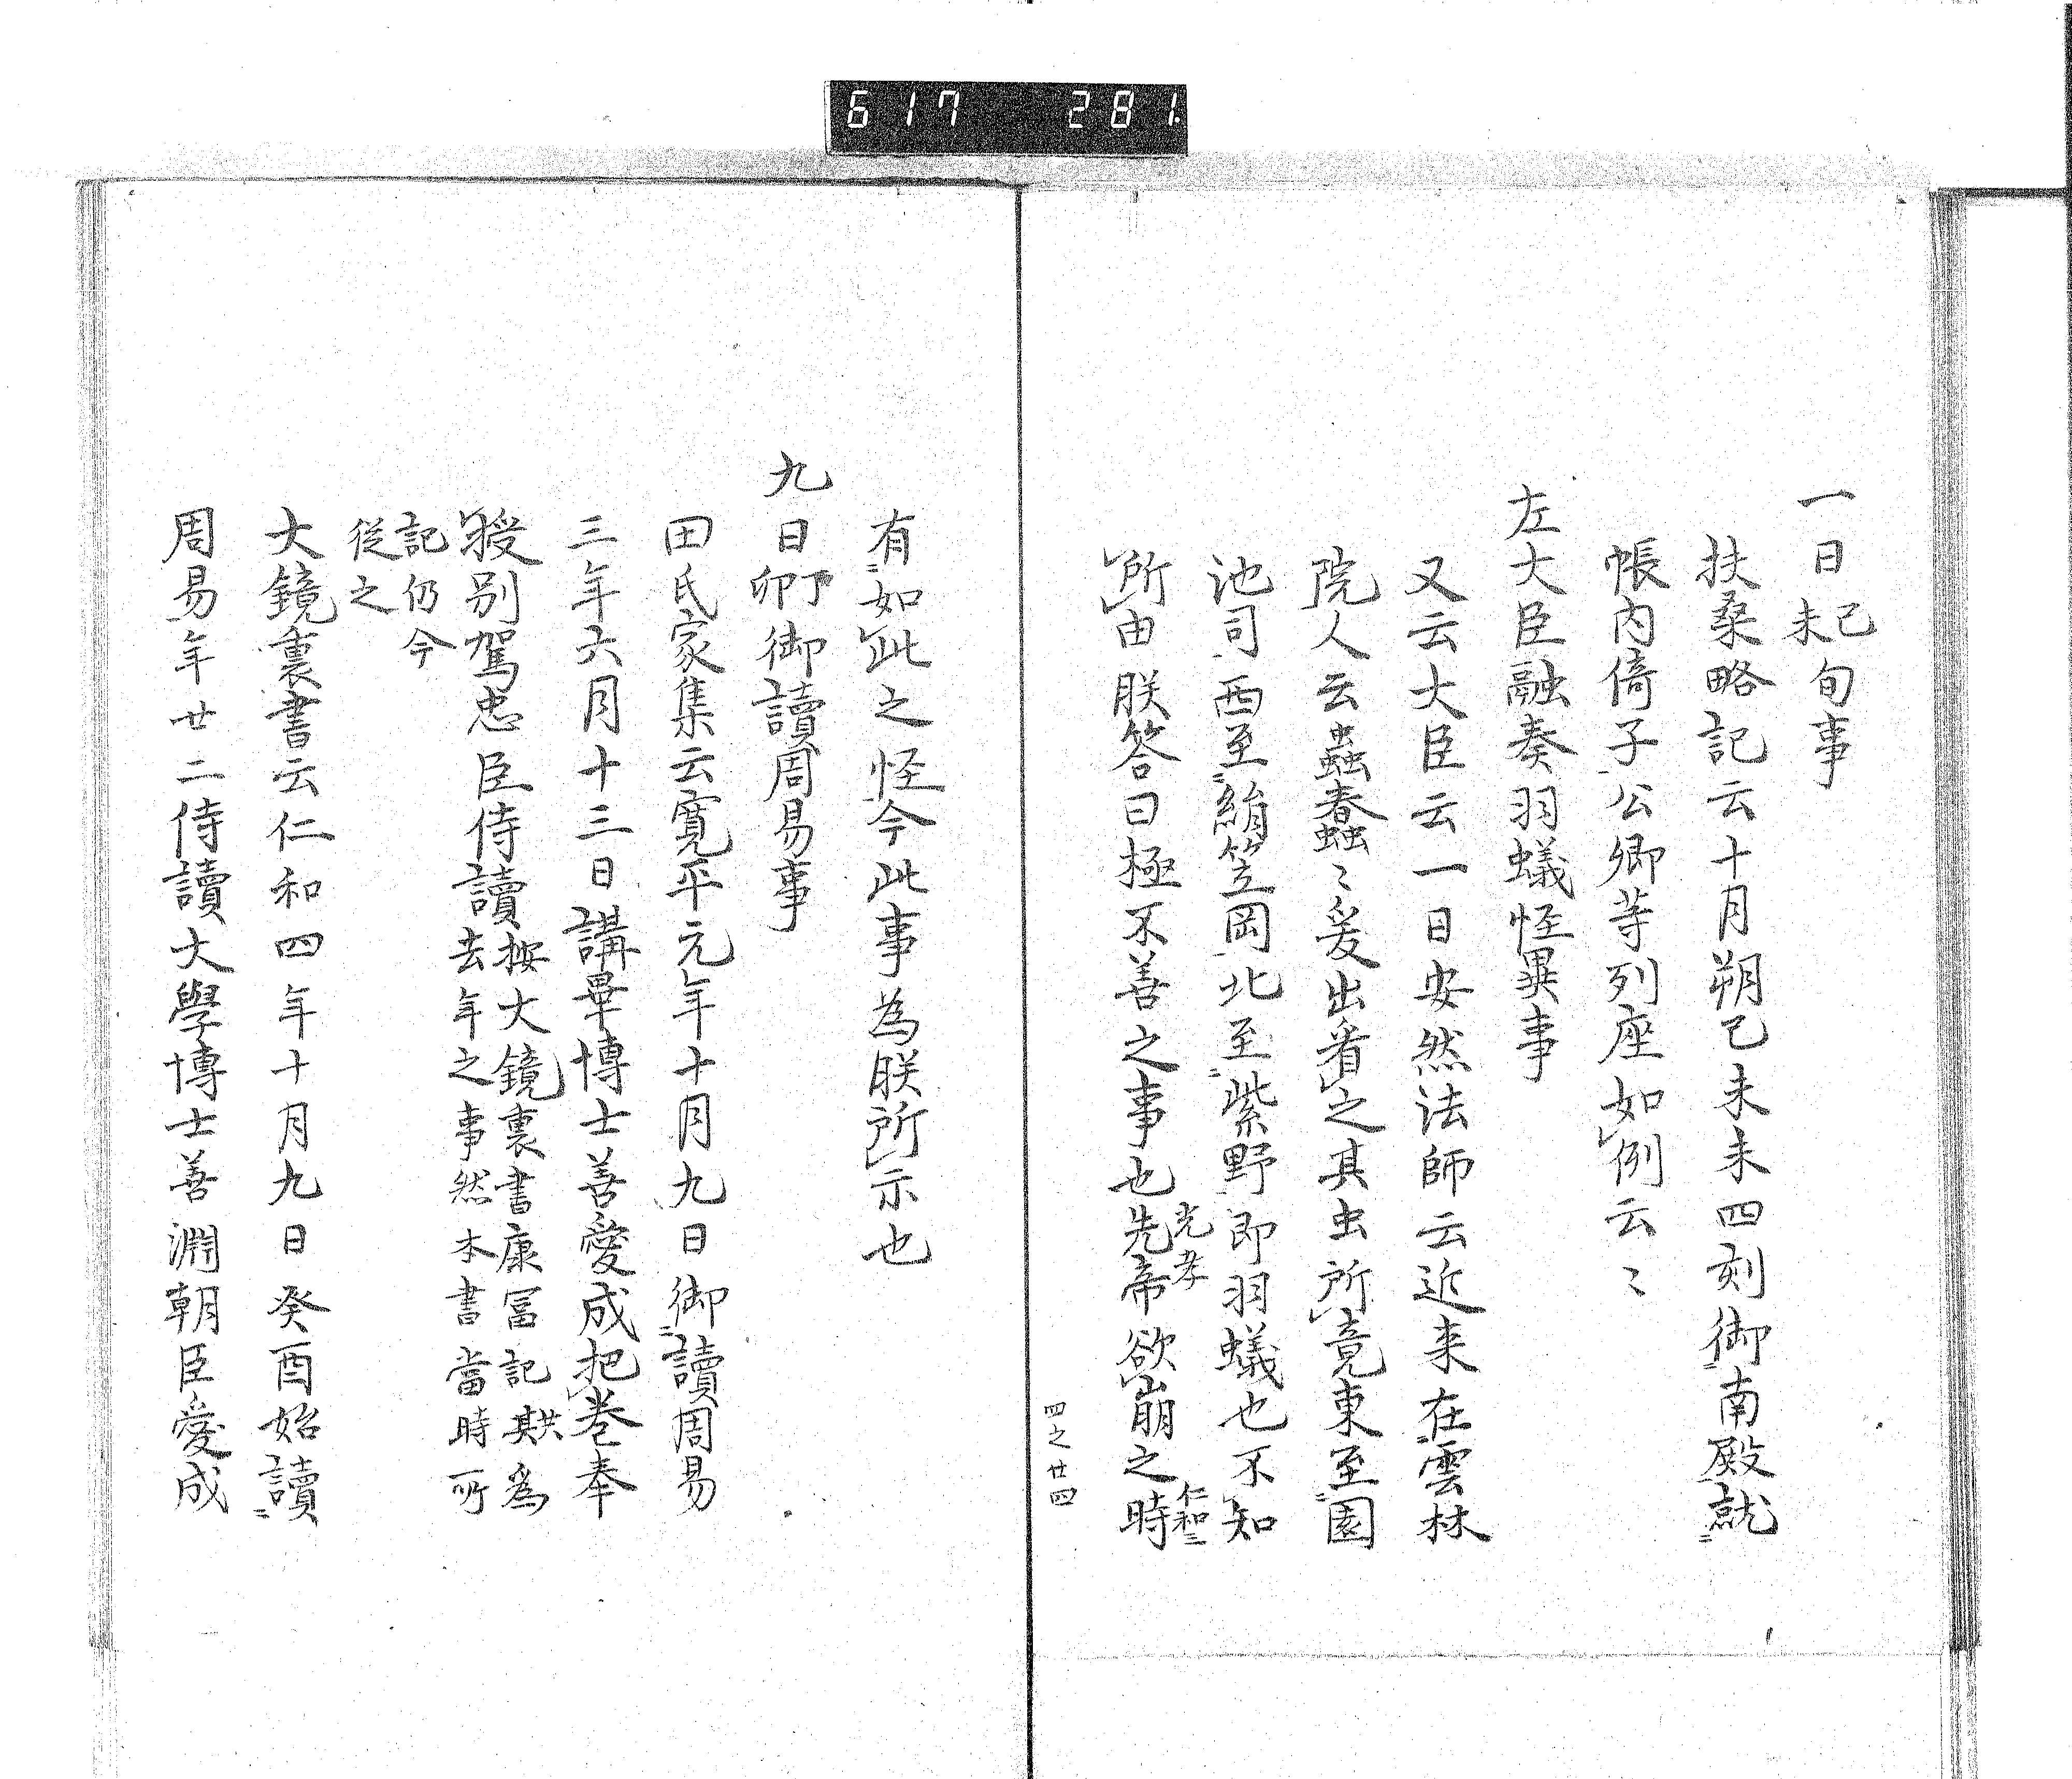 617 281.
一日己未旬事
扶桑略記云十月朔己未未四刻御南殿就
帳内倚子公卿等列座如例云〻
左大臣融奏羽蟻怪異事
又云大臣云一日安然法師云近来在雲林
院人云蟲蠢〻爰出看之其虫所竟東至園
池司西至絹笠岡北至紫野即羽蟻也不知
所由朕答曰極不善之事也先帝欲崩之時
光孝
仁和三
四之廿四
有如此之怪今此事為朕所示也
九日丁卯御讀周易事
田氏家集云寛平元年十月九日御讀周易
三年六月十三日講畢博士善愛成把巻奉
授別駕忠臣侍讀
按大鏡裏書康冨記其共為
去年之事然本書當時所
記仍今
従之
大鏡裏書云仁和四年十月九日癸酉始讀
周易年廿二侍讀大學博士善淵朝臣愛成